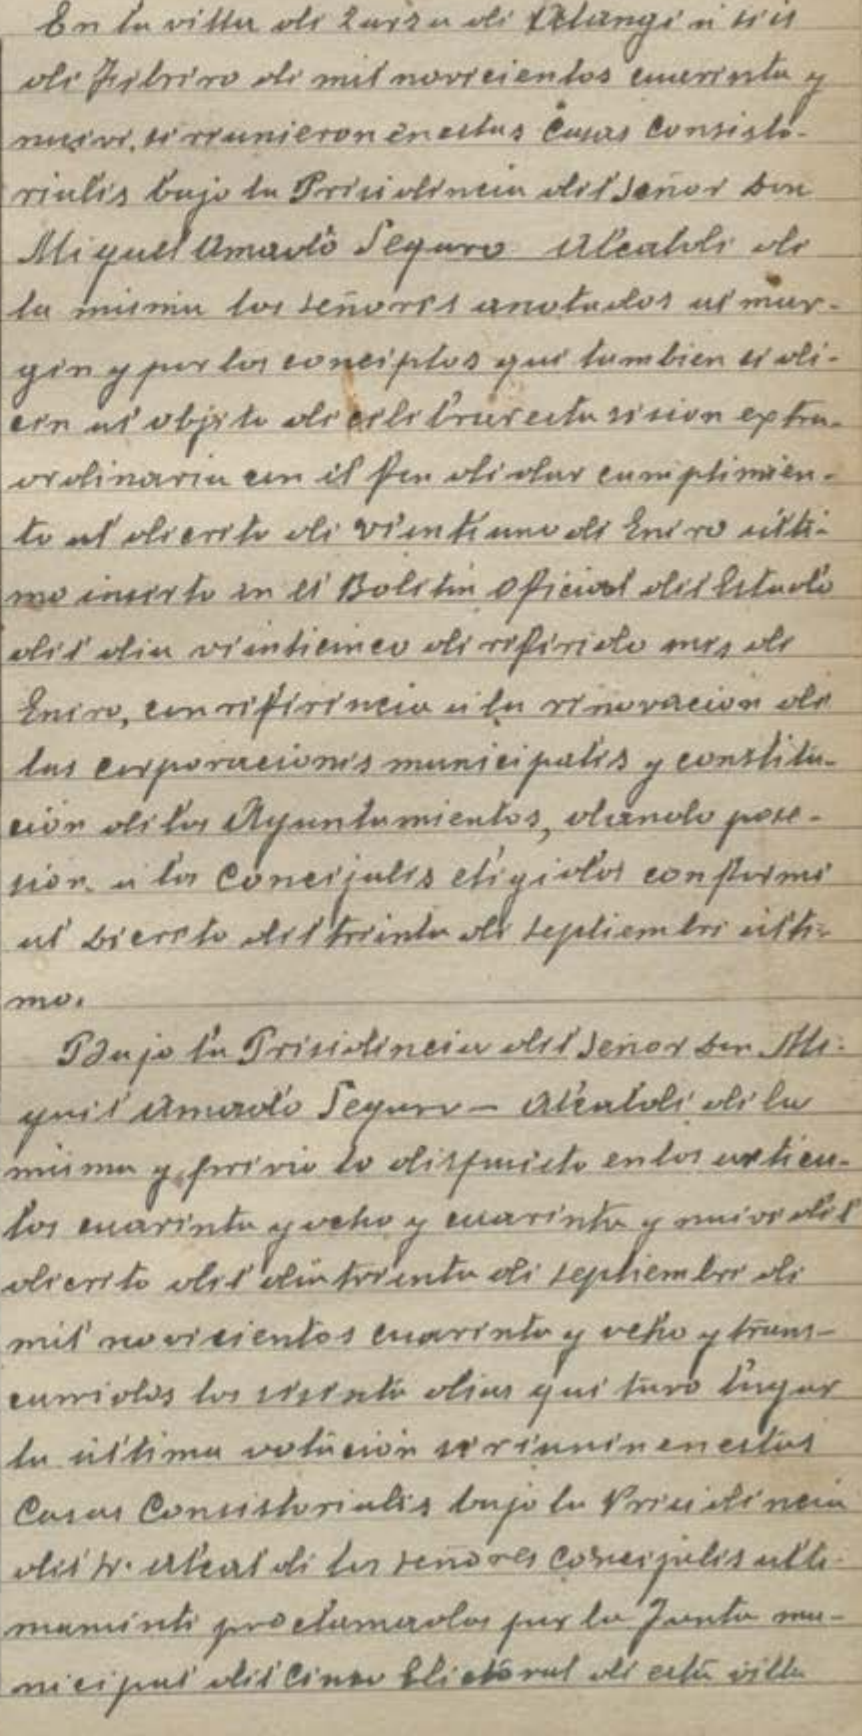 En la villa de Zarza de Alange a seis
de Febrero de mil novecientos cuarenta y
nueve, se reunieron en estas Casas Consisto-
riales bajo la Presidencia del Señor Don
Miguel Amado Seguro Alcalde de
la misma los señores anotados al mar-
gen y por los conceptos que tambien se di-
cen al objeto de celebrar esta sesion extra-
ordinaria con el fin de dar cumplimien-
to al decreto de veintiuno de Enero últi-
mo inserto en el Boletin Oficial del Estado
del dia veinticinco de referido mes de
Enero, con referencia a la renovacion de
las corporaciones municipales y constitu-
ción de los Ayuntamientos, dando pose-
sion a los Concejales elegidos conforme
al Decreto del treinta de septiembre últi-
mo.
Bajo la Presidencia del Señor Don Mi-
guel Amado Seguro - Alcalde de la
misma y previo lo dispuesto en los articu-
los cuarenta y ocho y cuarenta y nueve del
decreto del dia treinta de septiembre de
mil novecientos cuarenta y ocho y trans-
curridos los sesenta dias que tuvo lugar
la última votación se reunen en estas
Casas Consistoriales bajo la Presidencia
del Sr. Alcalde los señores Concejales ulti-
mamente proclamados por la Junta mu-
nicipal del Censo Electoral de esta villa